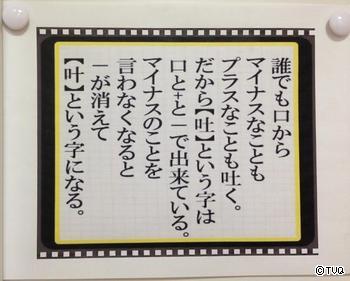 誰でも口から
マイナスなことも
プラスなことも吐く。
だから【吐】という字は
口と+と－で出来ている。
マイナスのことを
言わなくなると
－が消えて
【叶】という字になる。
©TUQ